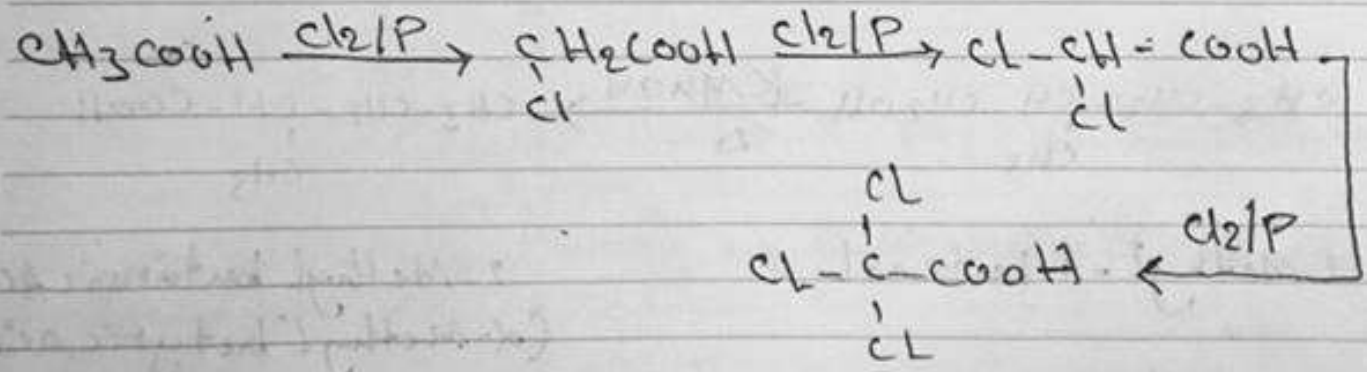 CH3COOH Cl2/P → CH2COOH Cl2/P → Cl-CH-COOH
Cl Cl
Cl
Cl-C-COOH ← Cl2/P
Cl